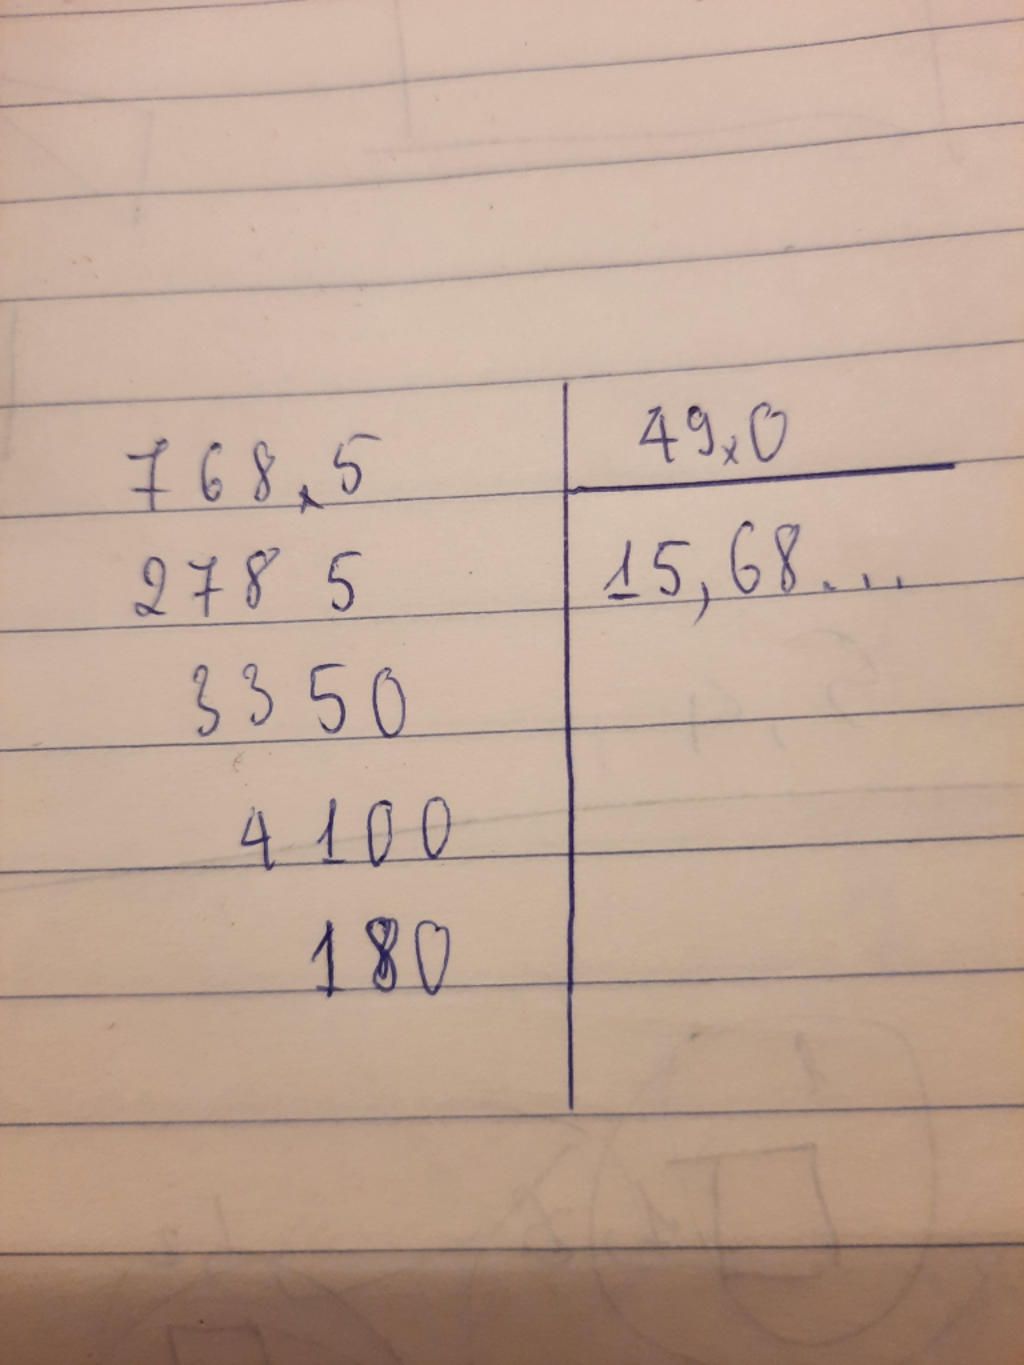 768,5 49,0
2785 15,68...
3350
4100
180